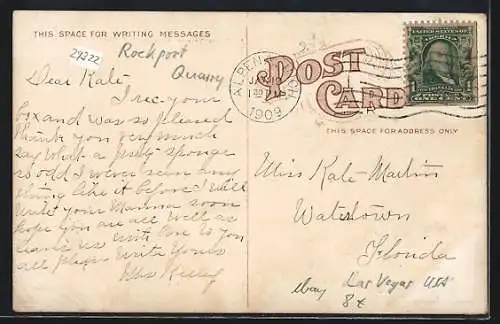 THIS SPACE FOR WRITING MESSAGES
29322
Rockport
Quarry
Dear Kate
I rec your
Box and was so pleased
Thank you very much
say what a pretty sponge
so odd I never seen any
thing like it before I will
write your Mamma soon
hope you are all well as
leaves us with love to you
all please write yours
ALPENA
JAN
1909
MICH
POST CARD
UNITED STATES OF AMERICA
1
ONE CENT
THIS SPACE FOR ADDRESS ONLY
Miss Kate Martin
Watertown
Florida
ebay Las Vegas USA
8€